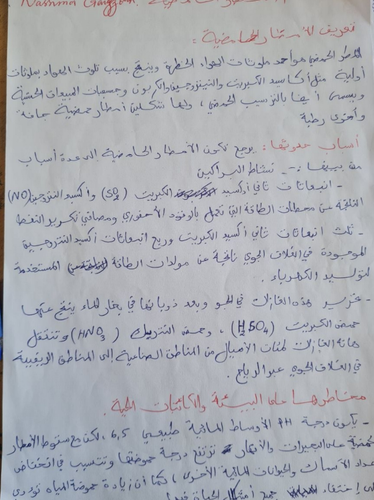 تعريف الأمطار الحامضية :
المطر الحمضي هو أحد ملوثات الهواء الخطرة وينتج بسبب تلوث الهواء بملوثات
أولية مثل أكاسيد الكبريت والنيتروجين والكربون وجسيمات المبيدات الحشرية
ويسمى أيضا بالترسيب الحمضي ، ولها شكلين أمطار حمضية جافة
وأخرى رطبة
أسباب حدوثها : يرجع تكون الأمطار الحامضية لعدة أسباب
من بينها : - نشاط البراكين
- انبعاثات ثاني أوكسيد الكبريت (SO₂) وأكسيد النتروجين (NO)
الناتجة من محطات الطاقة التي تعمل بالوقود الأحفوري ومصافي تكرير النفط
- ثلث انبعاثات ثاني أكسيد الكبريت وربع انبعاثات أكسيد النتروجين
الموجودة في الغلاف الجوي ناتجة عن مولدات الطاقة المستخدمة
لتوليد الكهرباء.
- هذه الغازات في الجو وبعد ذوبانها في بخار الماء ينتج عنها
حمض الكبريت (H₂SO4) ، وحمض النتريك (HNO₃) وتنتقل
هذه الغازات لمئات الأميال من المناطق الصناعية إلى المناطق الريفية
في الغلاف الجوي عبر الرياح.
مخاطرها على البيئة والكائنات الحية.
- يكون درجة PH الأوساط المائية طبيعي 6,5 لكن مع سقوط الأمطار
الحمضية على البحيرات والأنهار ترتفع درجة حموضتها وتتسبب في انخفاض
عداد الأسماك والحيوانات المائية الأخرى ، كما أن زيادة حموضة المياه تؤدي
إلى اختفاء جميع الحياة